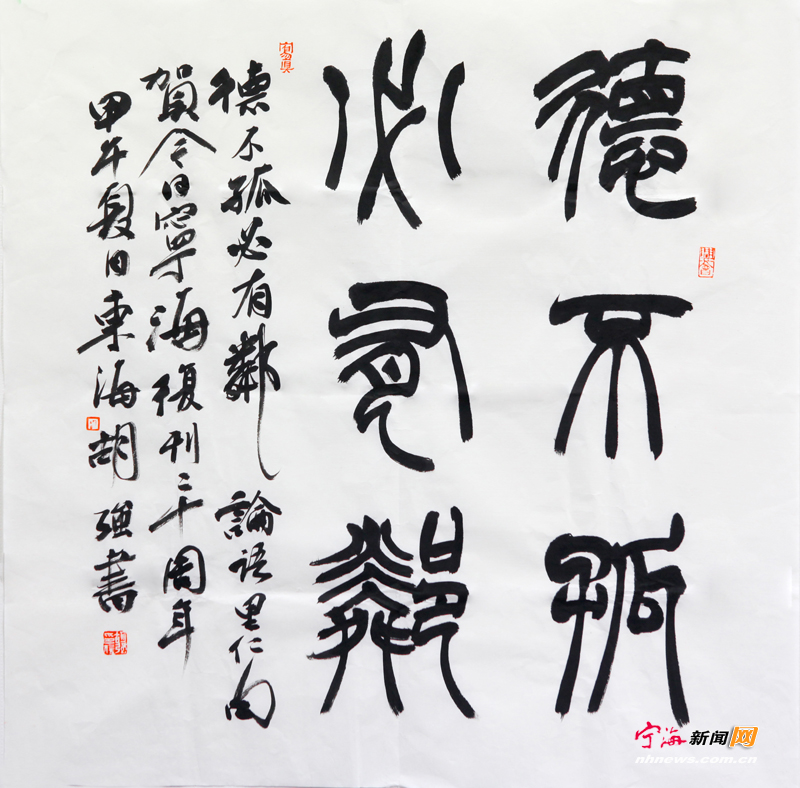 德不孤
必有鄰
德不孤必有鄰 論語里仁句
賀今日寧海復刊二十周年
甲午夏日東海胡強書
宁海新闻网
nhnews.com.cn